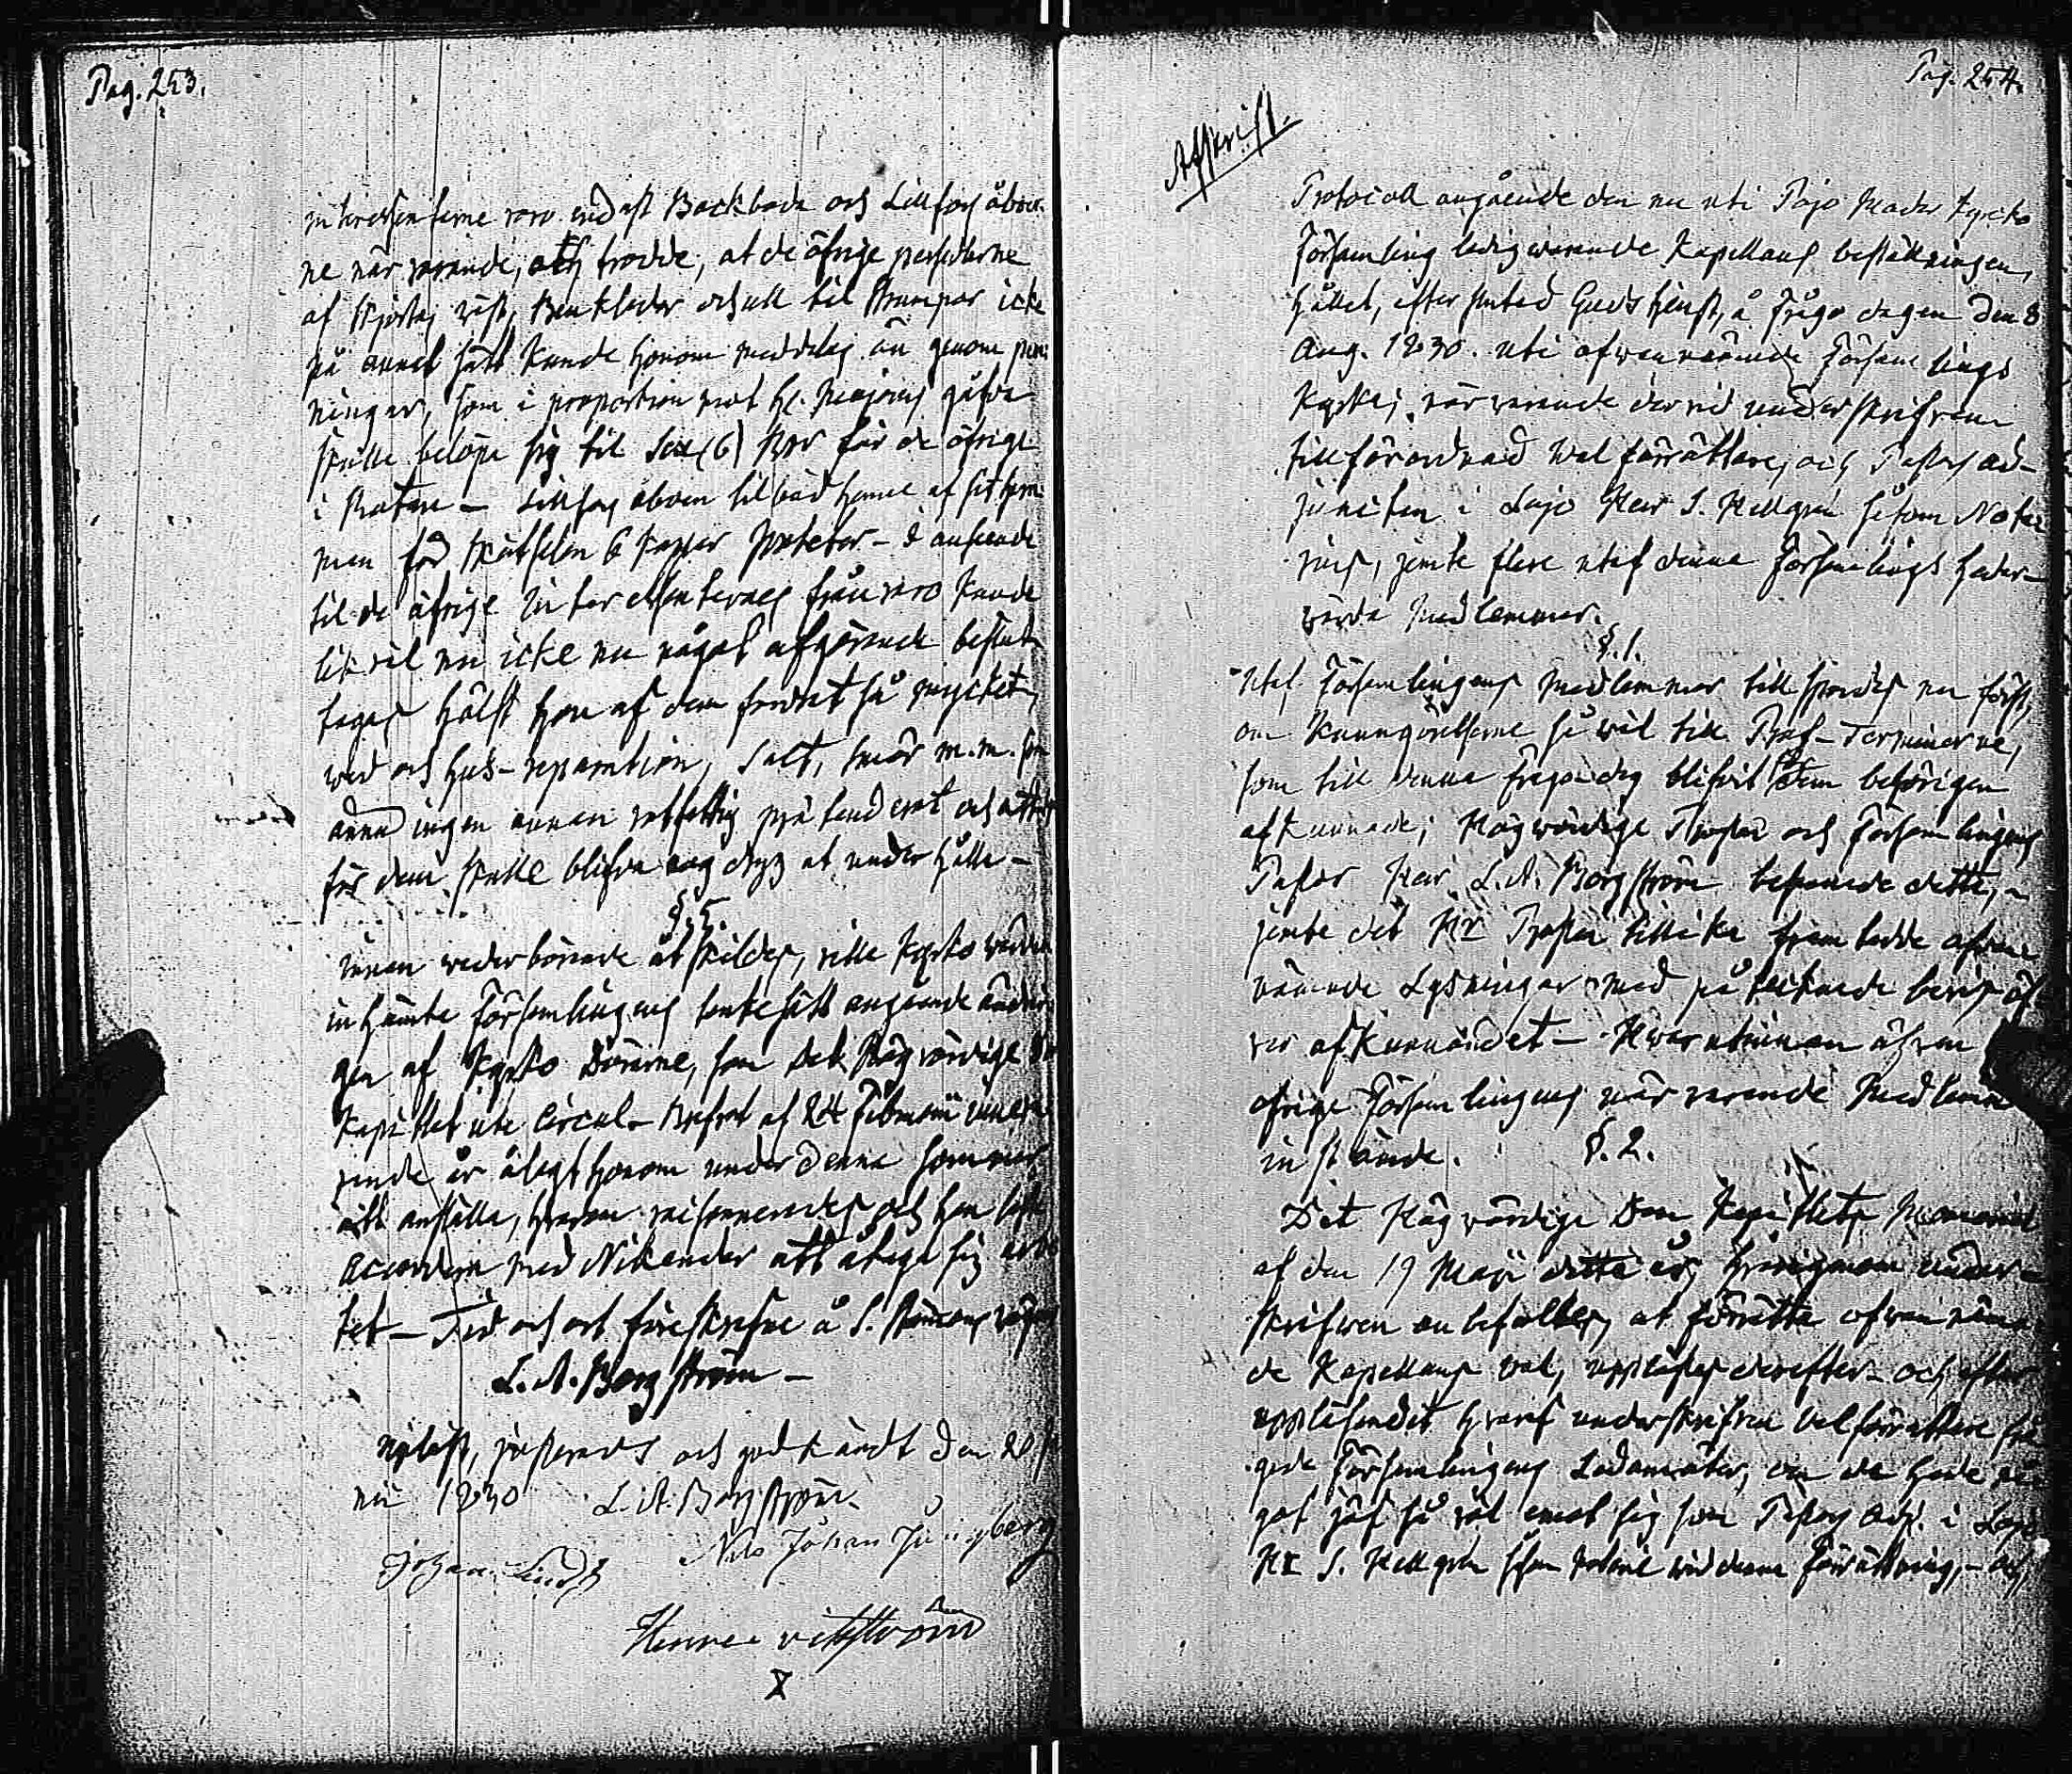 Pag. 253.
endast Backboda och Lillfors åboer-
ne när varande, och trodde, at de öfrige persedlarne
af Skjorta, väst, Benkläder och ull til Strumpor icke
på annat sätt kunde honom meddelas än genom pen-
ningar, som i proportion mot Hr. Majorens gåfva
skulle belöpa sig til Sex (6) för de öfrige
i Roten — Lillfors åboen tilböd af sit hem-
man 6 Kappar Potäter — I anseende
til de öfrige Interessenternes frånvaro kunde
likväl nu icke nu något afgörande beslut
tagas hälst hon af dem fordrat så mycket,
ved och hus-reparation, Salt, smör m.m. som
ännu ingen annan rotfattig prætenderat och
för dem skulle blifva nog drygt at underhålla —
§. 5.
Innan vederbörande åtskildes, ville Kyrko
inhämta Församlingens tankesätt angående ändrin-
gen af Kyrko Dörrarne, som det Högvördige Dom
Kapitlet uti Circul. Brefvet af 24 Februarii inneva-
rande år ålagt honom under denna sommar
att anställa, hvarom raisonnerades och han
accordera med Nikander att åtaga sig arbe-
tet — Tid och ort föreskrefne å S.
L. A. Borgström —
Upläst, justerades och godkändt den 20 Ju-
nii 1830 L. A. Borgström.
Johan Lindh Nils Johan Ljungberg
X
Pag. 254.
Afskrift.
Protocoll angående den nu uti Pojo Moder Kyrcko
Församling ledigvarande Kapellans beställningen,
hållet, efter slutad Guds tienst, å Fråge dagen den 8
Aug. 1830. uti ofwannämnde Församlings
Kyrka; närvarande dervid underskrifven
tillförordnad Val förrättare, och Pastors ad-
juncten i Lojo Herr S. Hellgrén såsom Nota-
rius, jemte flere utaf denna Församlings heder-
värda Medlemmar.
§. 1.
Utaf Församlingens Medlemmar tillspordes nu först,
om Kunngörelserne så väl till Prof-Terminerne,
som till denna frågodag blifvit dem behörigen
afkunnade; Högvördige Prosten och Församlingens
Pastor Herr L. A. Borgström bejakade detta, —
jemte det Hr Prosten tillika framtedde ofvan
nämnde Lysningar med påtecknade bevis öf-
ver afkunnandet — Hvarutinnan äfven
öfrige Församlingens närvarande Medlemmar
instämde.
§. 2.
Det Högvördige Dom Kapitlets Memorial
af den 19 Maji detta år, hvarigenom under-
skrifven anbefalles, at förrätta ofvannämn-
de Kapellans val, upplästes derefter — och efter
uppläsandet hvaraf underskrifven Valförrättare frå-
gade Församlingens Ledamöter, om de hade nå-
got jäf så väl emot sig som Pastors Adj. i Lojo
Hr S. Hellgrén såsom Notarie vid denna förrättning, — och,